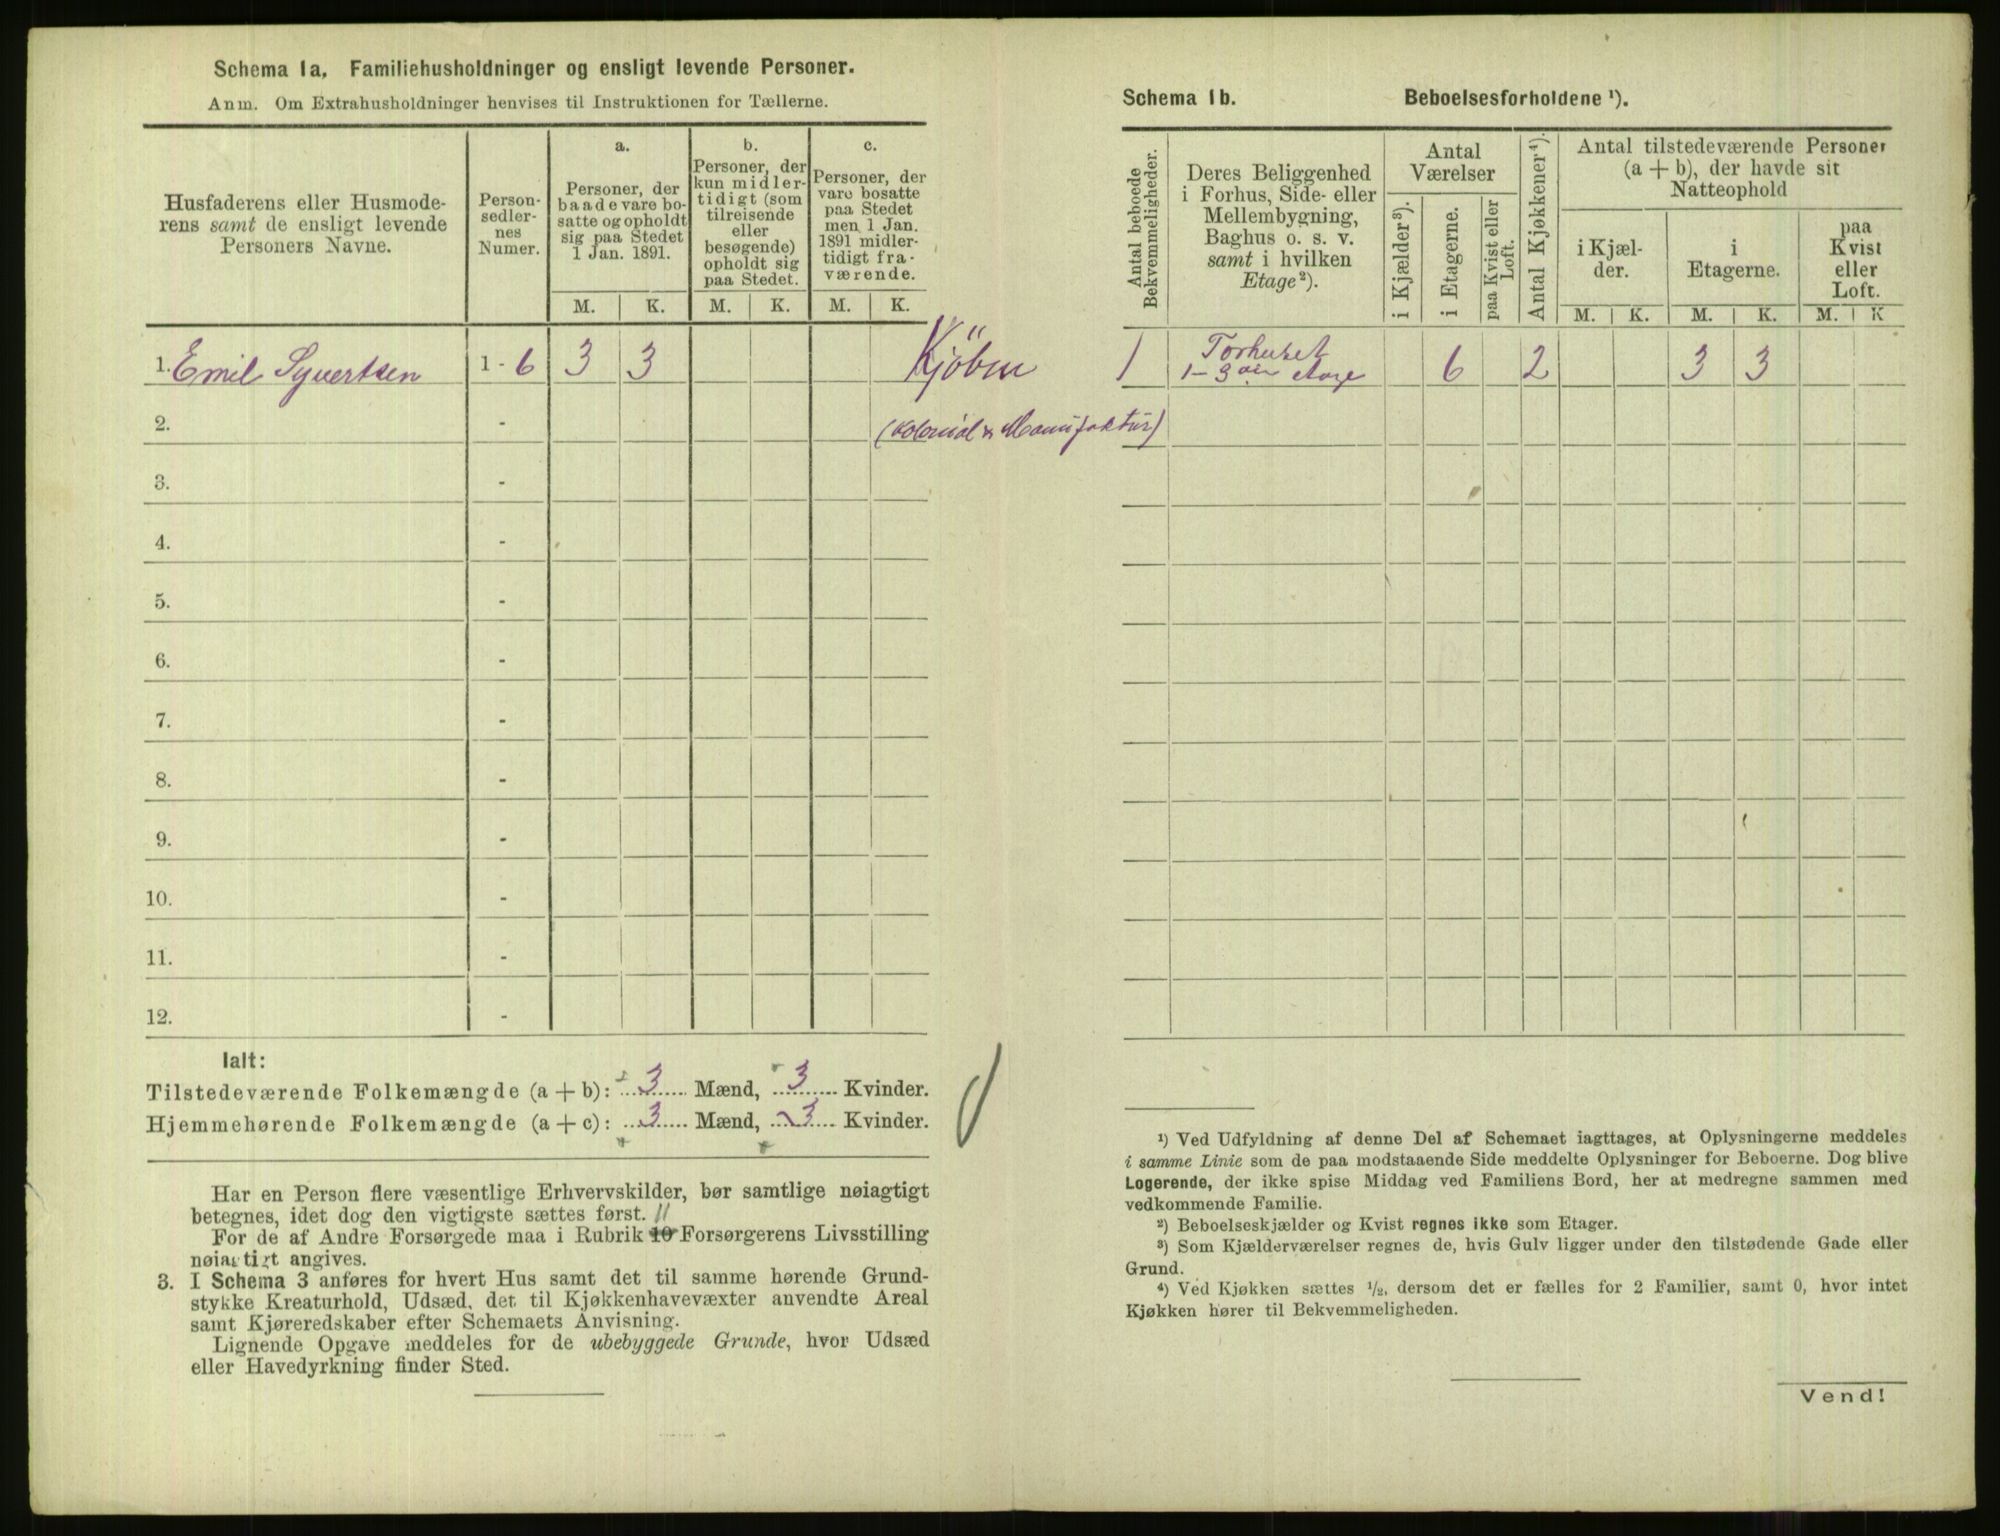 Schema 1a. Familiehusholdninger og ensligt levende Personer.
Anm. Om Extrahusholdninger henvises til Instruktionen for Tællerne.
Husfaderens eller Husmode-
rens samt de ensligt levende
Personers Navne.
Person-
sedler-
nes
Numer.
a.
Personer, der
baade vare bo-
satte og opholdt
sig paa Stedet
1 Jan. 1891.
b.
Personer, der
kun midler-
tidigt (som
tilreisende
eller
besøgende)
opholdt sig
paa Stedet.
c.
Personer, der
vare bosatte
paa Stedet
men 1 Jan.
1891 midler-
tidigt fra-
værende.
M. K. M. K. M. K.
1. Emil Syvertsen 1 - 6 3 3
Kjöbm
2. -
(Kolonial & Manufaktur)
3. -
4. -
5. -
6. -
7. -
8. -
9. -
10. -
11. -
12. -
Ialt:
Tilstedeværende Folkemængde (a + b): 3 Mænd, 3 Kvinder.
Hjemmehørende Folkemængde (a + c): 3 Mænd, 3 Kvinder.
Har en Person flere væsentlige Erhvervskilder, bør samtlige nøiagtigt
betegnes, idet dog den vigtigste sættes først. 11
For de af Andre Forsørgede maa i Rubrik 10 Forsørgerens Livsstilling
nøiagtigt angives.
3. I Schema 3 anføres for hvert Hus samt det til samme hørende Grund-
stykke Kreaturhold, Udsæd, det til Kjøkkenhavevæxter anvendte Areal
samt Kjøreredskaber efter Schemaets Anvisning.
Lignende Opgave meddeles for de ubebyggede Grunde, hvor Udsæd
eller Havedyrkning finder Sted.
Schema 1b. Beboelsesforholdene ¹).
Antal beboede
Bekvemmeligheder.
Deres Beliggenhed
i Forhus, Side- eller
Mellembygning,
Baghus o. s. v.
samt i hvilken
Etage ²).
Antal
Værelser
i Kjælder ³).
i Etagerne.
paa Kvist eller
Loft.
Antal Kjøkkener ⁴).
Antal tilstedeværende Personer
(a + b), der havde sit
Natteophold
i Kjæl-
der.
i
Etagerne.
paa
Kvist
eller
Loft.
M. K. M. K. M. K
1 Forhuset
1 - 3 die Etage 6 2 3 3
¹) Ved Udfyldning af denne Del af Schemaet iagttages, at Oplysningerne meddeles
i samme Linie som de paa modstaaende Side meddelte Oplysninger for Beboerne. Dog blive
Logerende, der ikke spise Middag ved Familiens Bord, her at medregne sammen med
vedkommende Familie.
²) Beboelseskjælder og Kvist regnes ikke som Etager.
³) Som Kjælderværelser regnes de, hvis Gulv ligger under den tilstødende Gade eller
Grund.
⁴) Ved Kjøkken sættes ½, dersom det er fælles for 2 Familier, samt 0, hvor intet
Kjøkken hører til Bekvemmeligheden.
Vend!